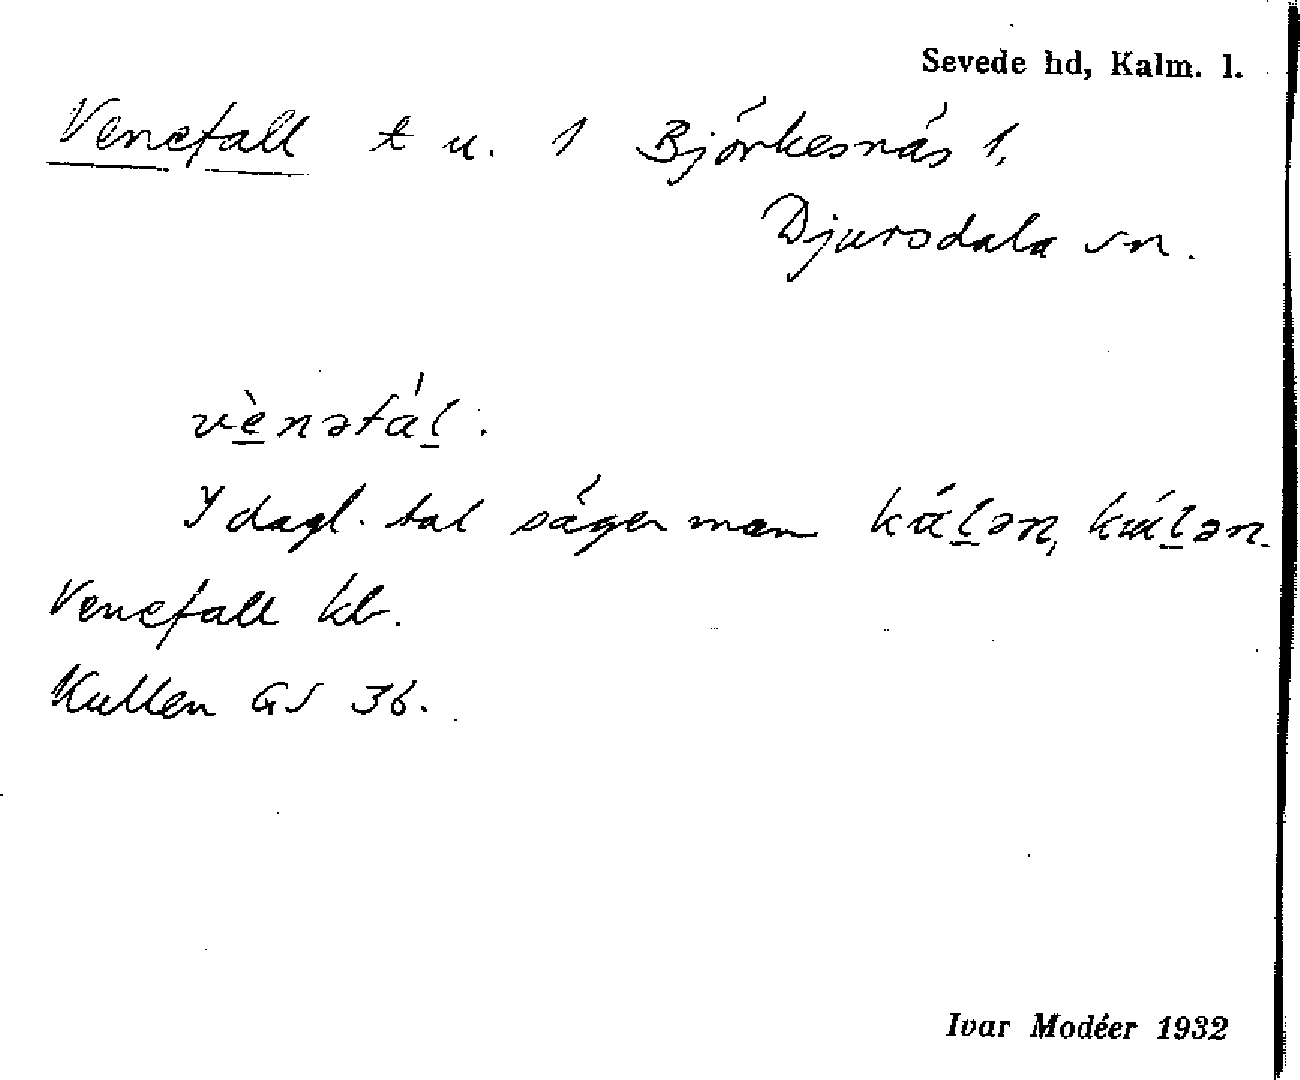 Sevede hd, Kalm. l.
Venefall t u. 1 Björkesnäs 1,
Djursdala sn.
vènəfál.
I dagl. tal säger man kálən, kúlən.
Venefall kb.
Kullen GS 36.
Ivar Modéer 1932